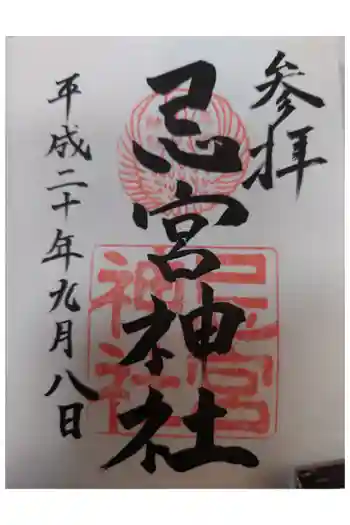 参拝
忌宮神社
平成二十年九月八日
忌宮
神社